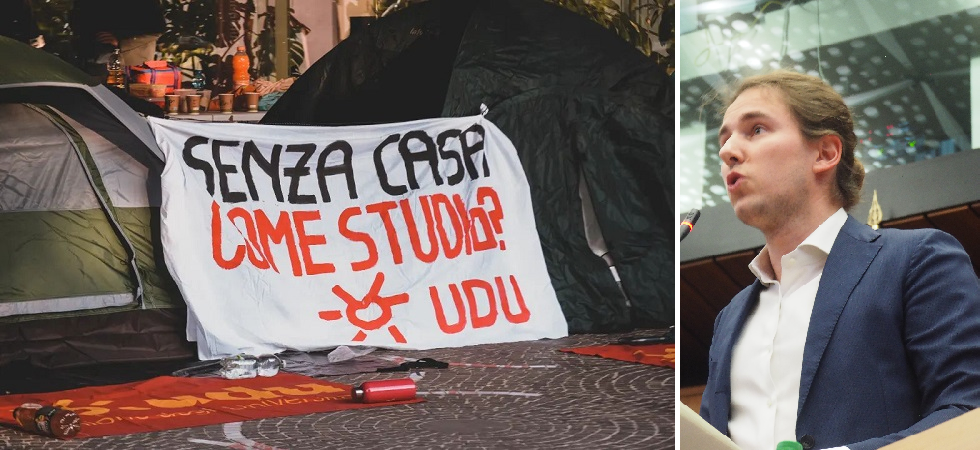 SENZA CASA
COME STUDIO?
UDU